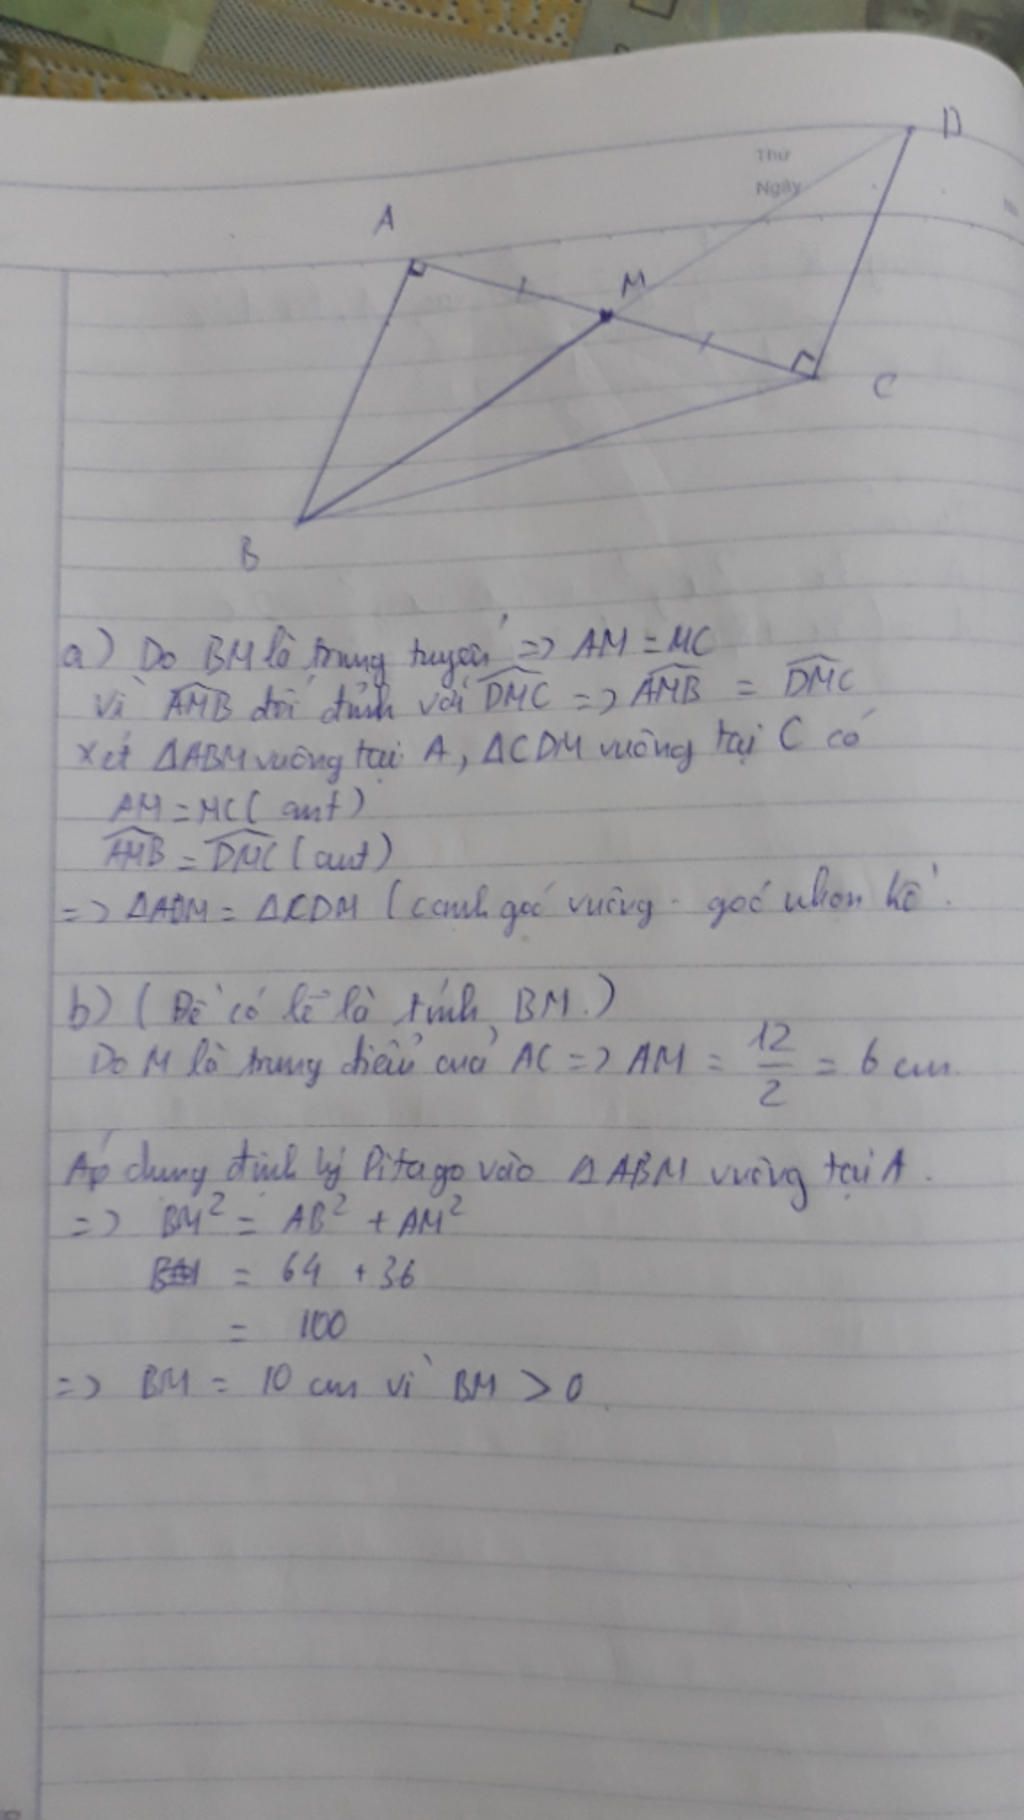 D
Thứ
Ngày
A
M
C
B
a) Do BM là trung tuyến => AM = MC
Vì AMB đối đỉnh với DMC => AMB = DMC
Xét ΔABM vuông tại A, ΔCDM vuông tại C có
AM = MC (cmt)
AMB = DMC (cmt)
=> ΔABM = ΔCDM (cạnh góc vuông - góc nhọn kề.
b) (Đề có lẽ là tính BM.)
Do M là trung điểm của AC => AM = 12/2 = 6 cm.
Áp dụng định lý Pitago vào ΔABM vuông tại A.
=> BM² = AB² + AM²
= 64 + 36
= 100
=> BM = 10 cm vì BM > 0